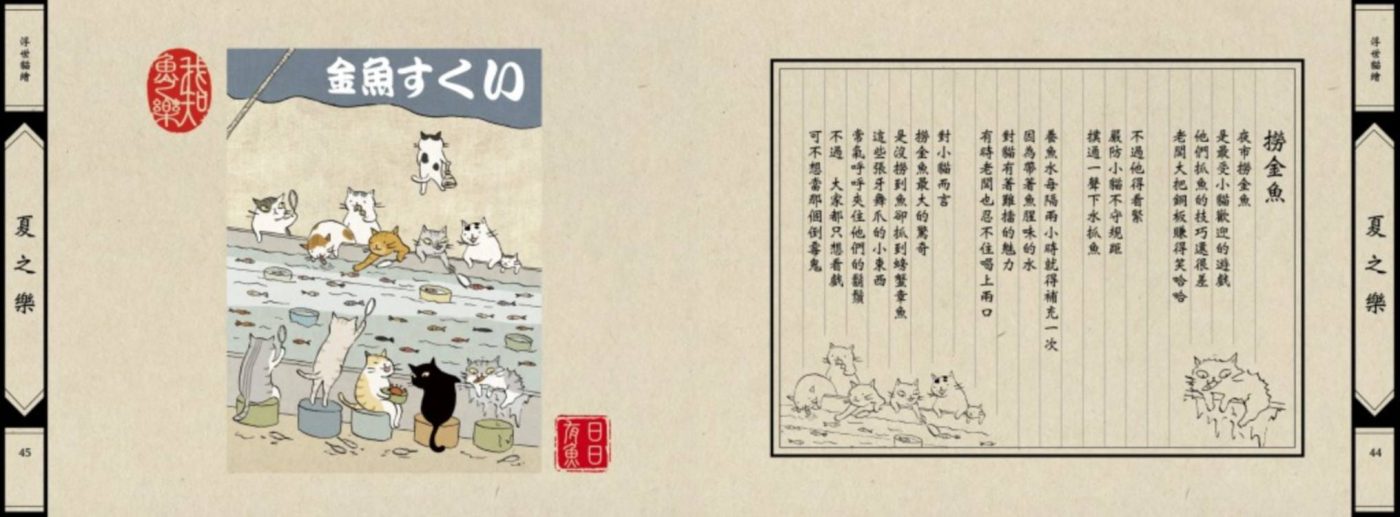 浮世貓繪
夏之樂
44
撈金魚
夜市撈金魚
是最受小貓歡迎的遊戲
他們抓魚的技巧還很差
老闆大把銅板賺得笑哈哈
不過他得看緊
嚴防小貓不守規距
撲通一聲下水抓魚
養魚水每隔兩小時就得補充一次
因為帶著魚腥味的水
對貓有著難擋的魅力
有時老闆也忍不住喝上兩口
對小貓而言
撈金魚最大的驚奇
是沒撈到魚卻抓到螃蟹章魚
這些張牙舞爪的小東西
常氣呼呼夾住他們的鬍鬚
不過 大家都只想看戲
可不想當那個倒霉鬼
金魚すくい
我知
魚之樂
日日
有魚
浮世貓繪
夏之樂
45